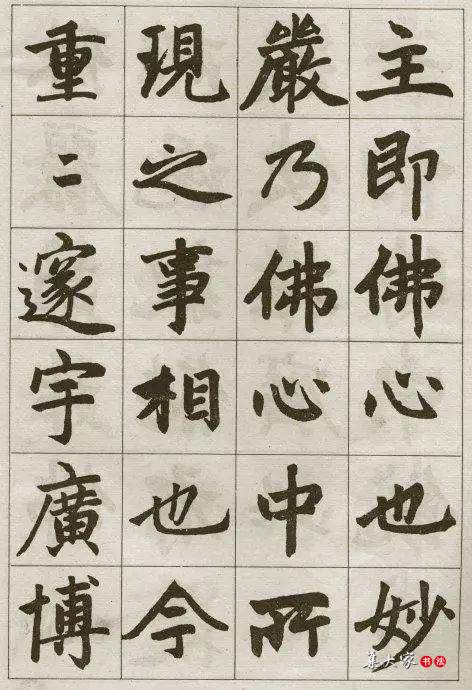 主即佛心也妙
嚴乃佛心中所
現之事相也今
重二邃宇廣博
集大家书法